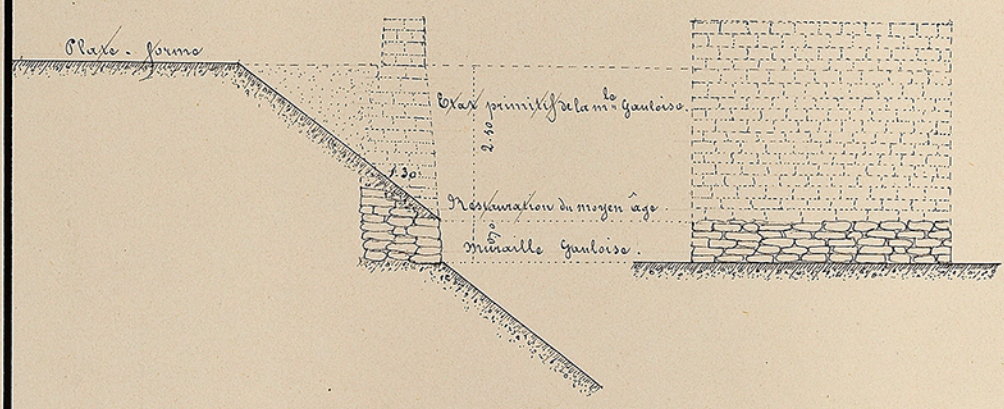 Plate-forme
Etat primitif de la m.le Gauloise.
2.50
1.30
Restauration du moyen âge
0.70
Muraille Gauloise.